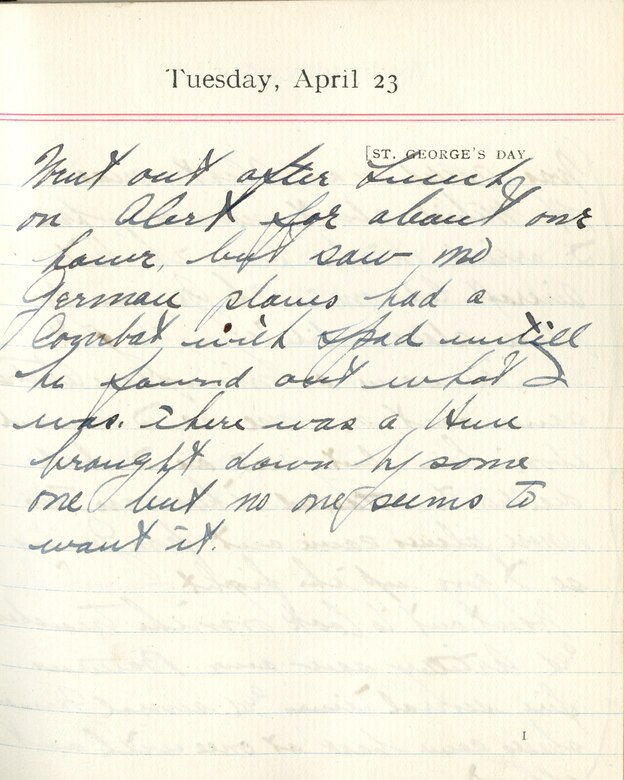 Tuesday, April 23
[ST. GEORGE'S DAY
Went out after Lunch
on Alert for about one
hour, but saw no
German planes had a
Combat with Spad untill
he found out what I
was. There was a Hun
brought down by some
one but no one seems to
want it.
I